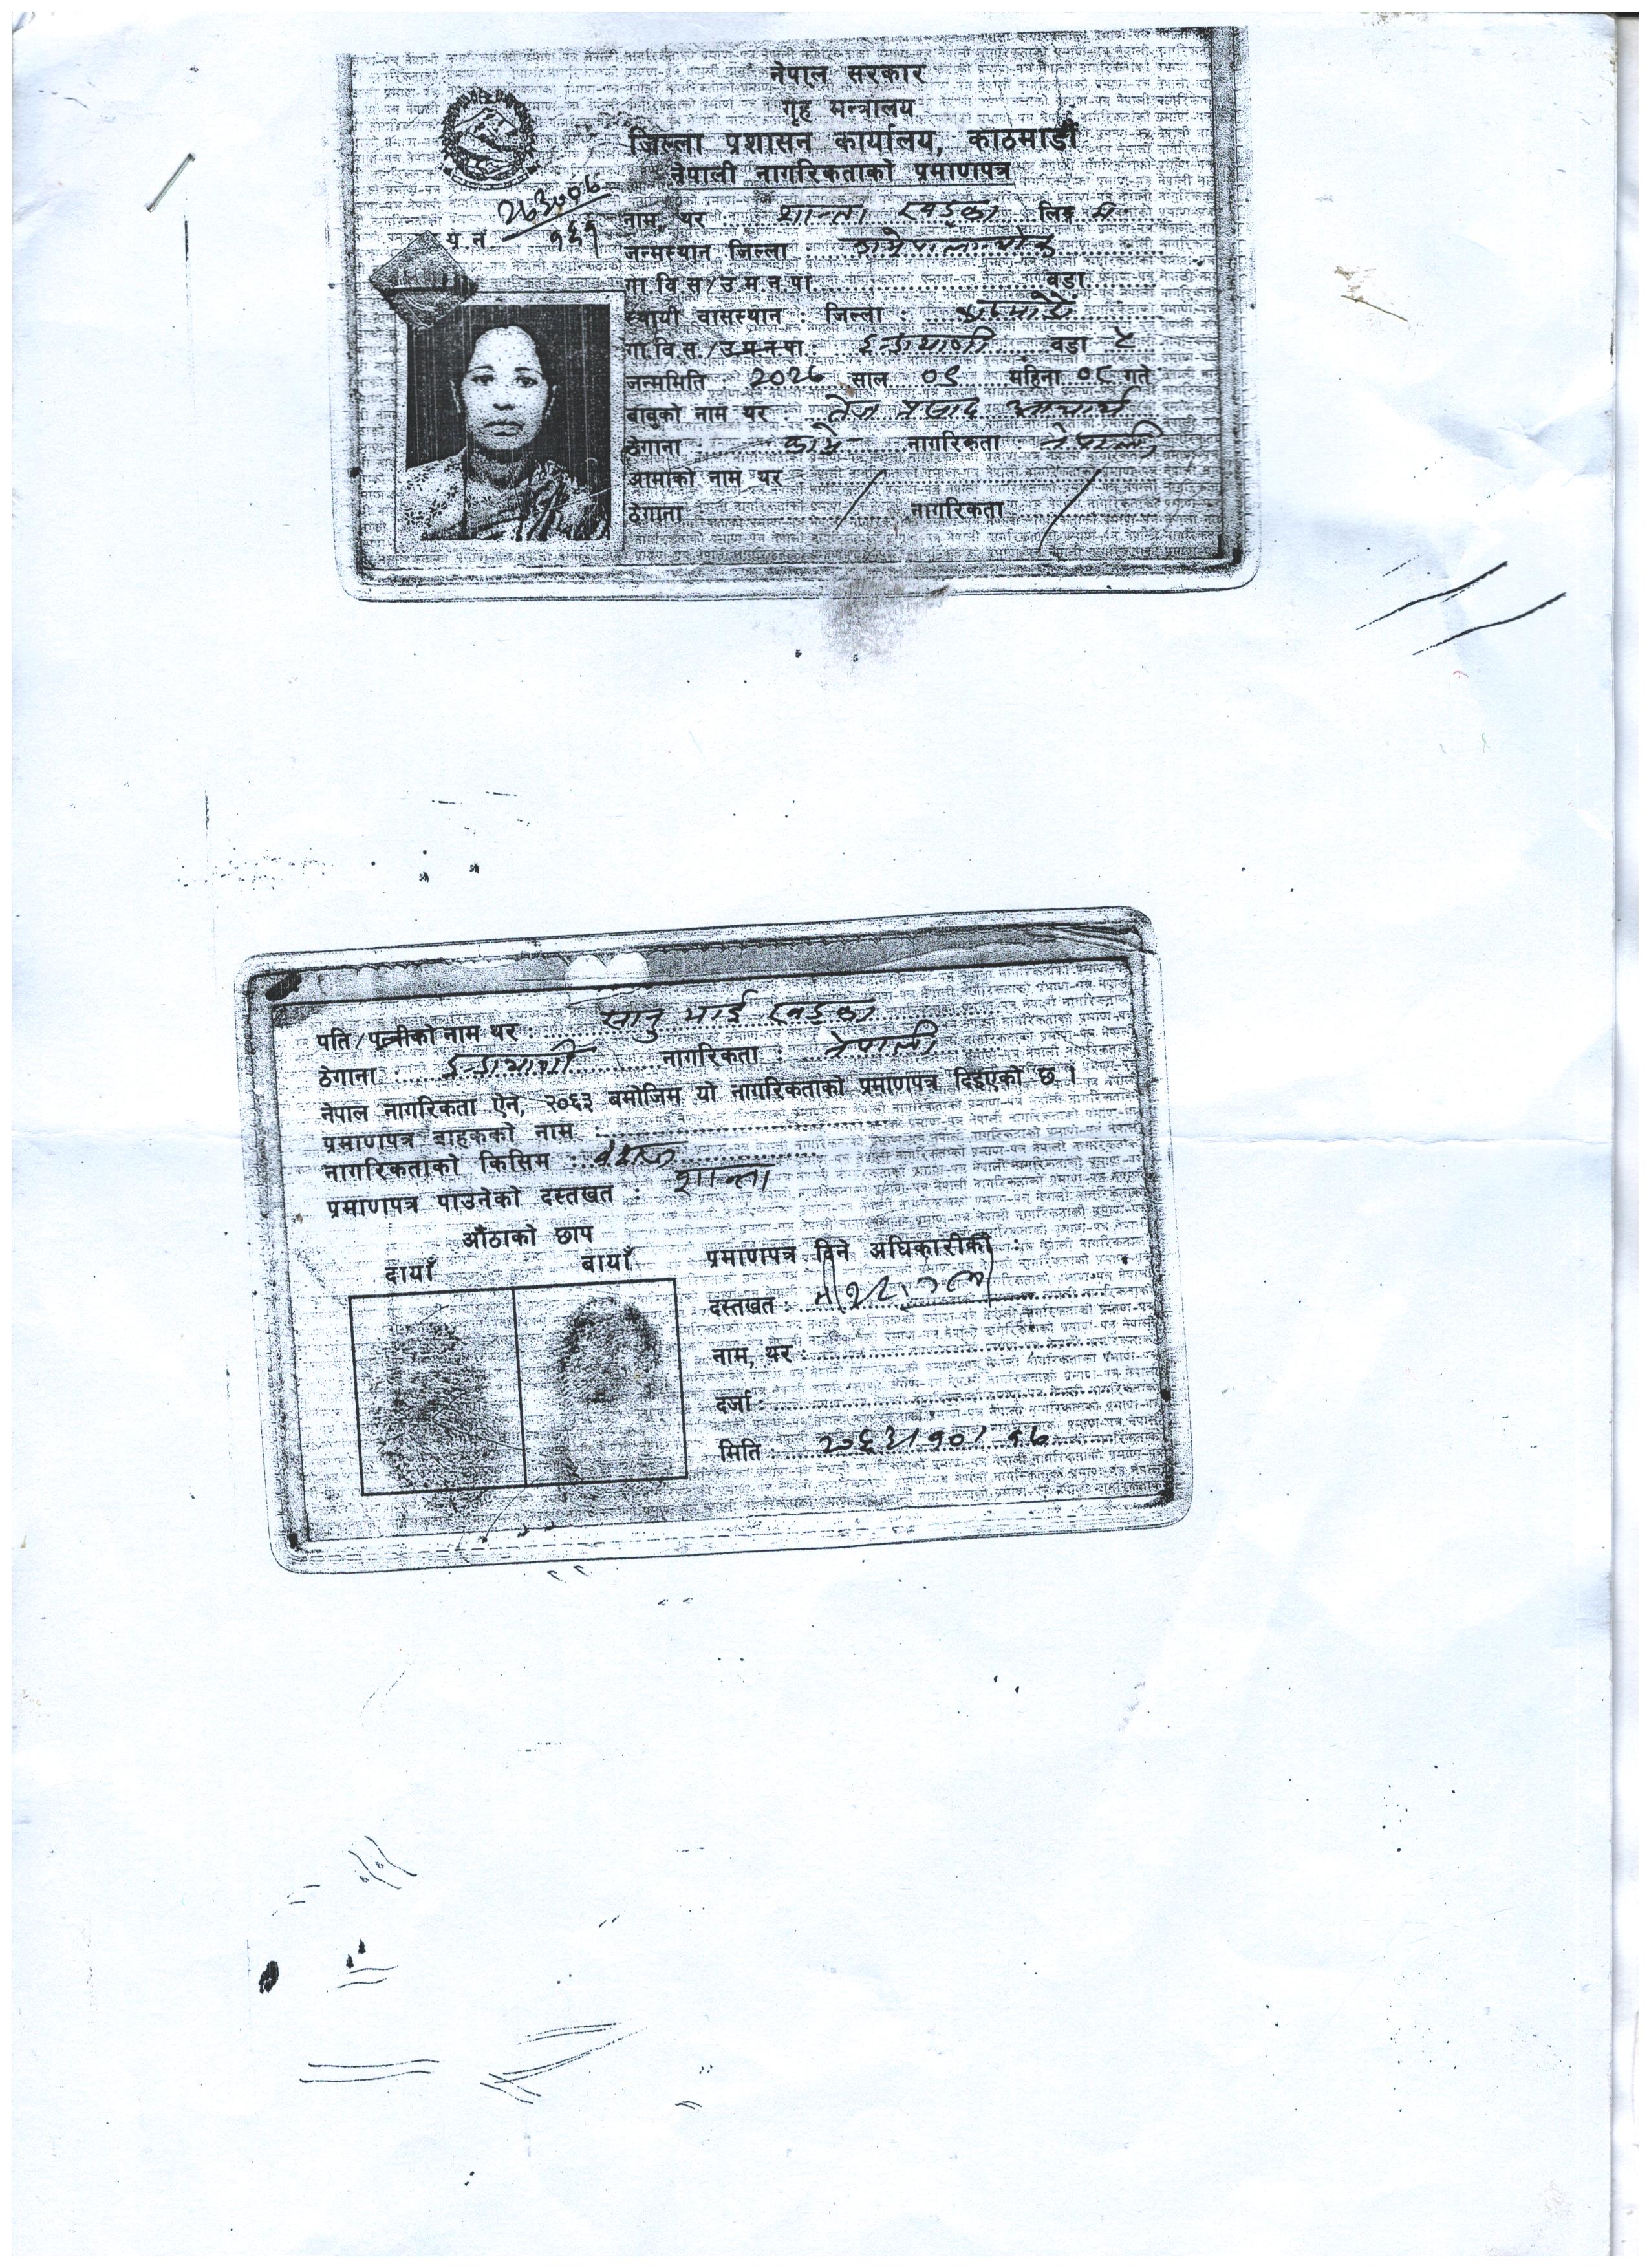 नेपाल सरकार
गृह मन्त्रालय
जिल्ला प्रशासन कार्यालय, काठमाडौं
नेपाली नागरिकताको प्रमाणपत्र
नाम, थर : शान्ता खड्का लिङ्ग म
जन्मस्थान जिल्ला : काभ्रेपलान्चोक
गा.वि.स/उ.म.न.पा. वडा
स्थायी वासस्थान : जिल्ला : काठमाडौं
गा.वि.स./उ.म.न.पा : ईन्द्रायणी वडा
जन्ममिति : साल ०९ महिना ०९ गते
बाबुको नाम थर : तेज प्रसाद आचार्य
ठेगाना : काभ्रे नागरिकता : नेपाली
आमाको नाम थर :
ठेगाना : नागरिकता
पति/पत्नीको नाम थर : सानु भाई खड्का
ठेगाना : ईन्द्रायणी नागरिकता : नेपाली
नेपाल नागरिकता ऐन, २०६३ बमोजिम यो नागरिकताको प्रमाणपत्र दिइएको छ ।
प्रमाणपत्र बाहकको नाम :
नागरिकताको किसिम : वंशज
प्रमाणपत्र पाउनेको दस्तखत : शान्ता
औंठाको छाप
दायाँ बायाँ
प्रमाणपत्र दिने अधिकारीको :
दस्तखत :
नाम, थर :
दर्जा :
मिति : २०६३।१०।१७